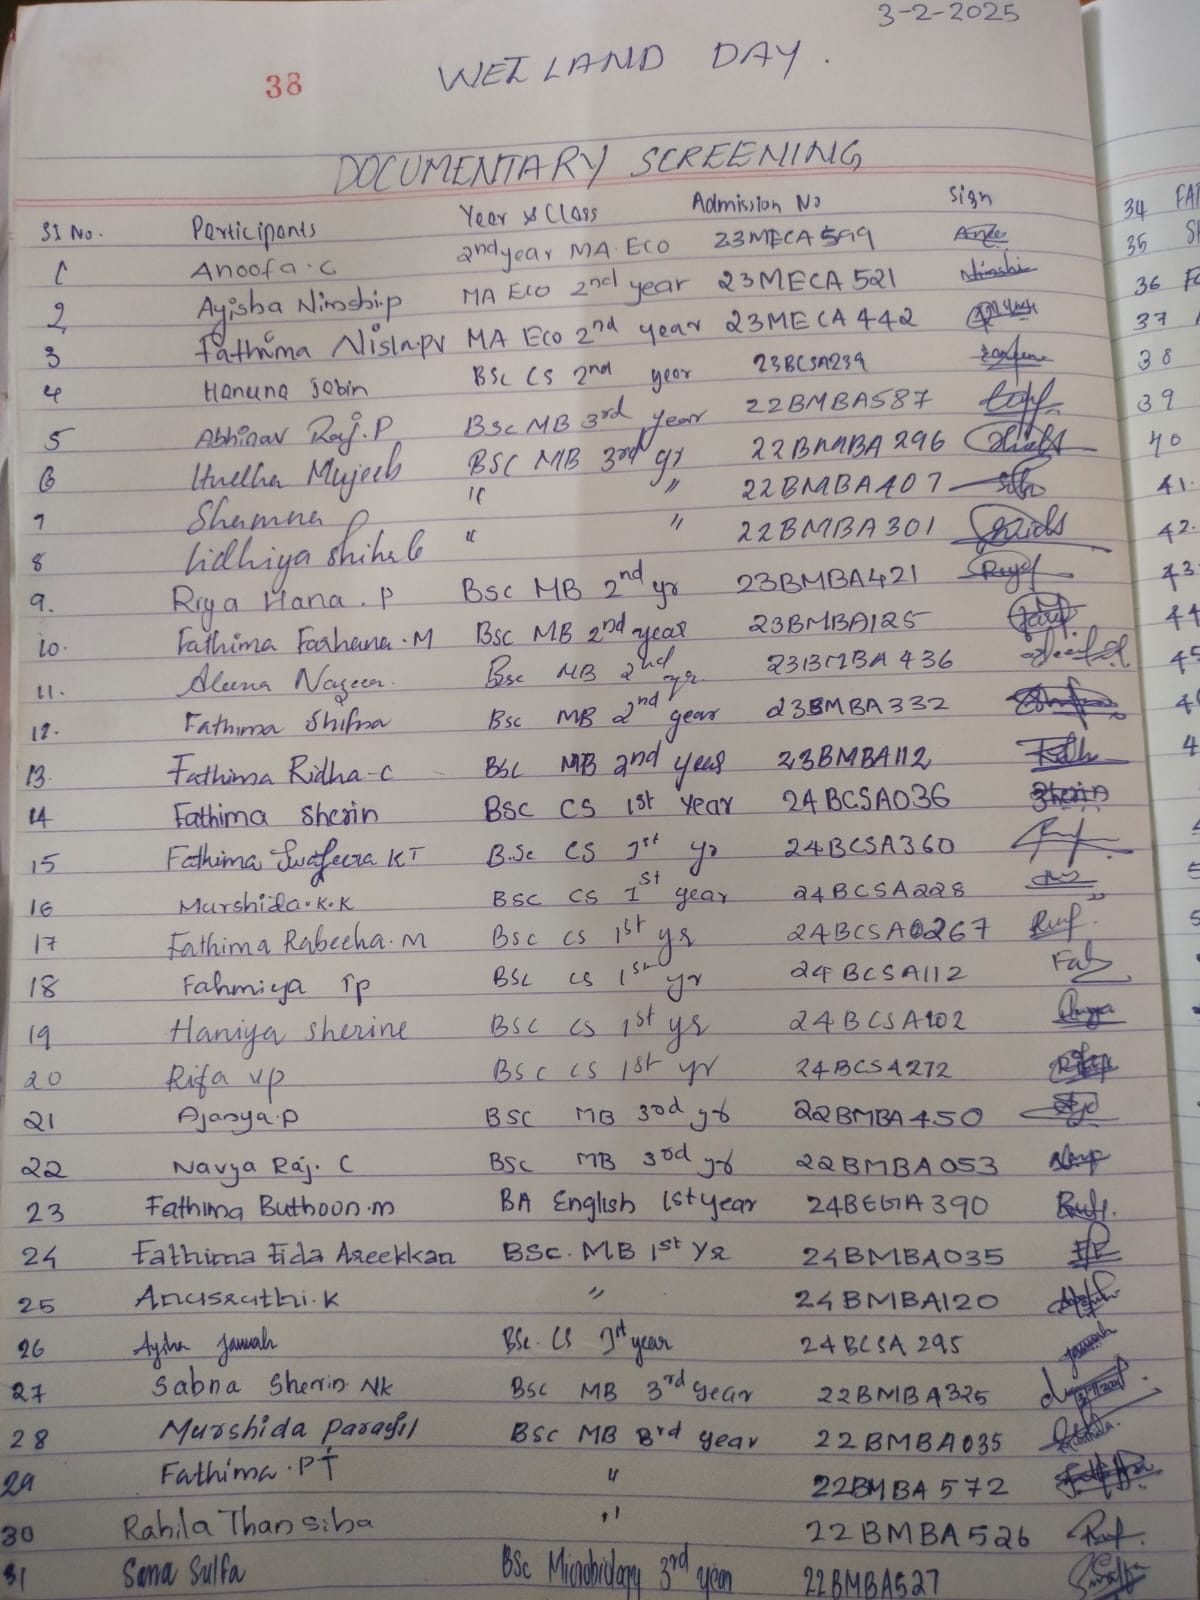 3-2-2025
38 WETLAND DAY.
DOCUMENTARY SCREENING
Sl No. Participants Year & Class Admission No Sign
1 Anoofa.C 2nd year MA. ECO 23MECA599
2 Ayisha Ninoshi.p MA Eco 2nd year 23MECA521 Ninoshi
3 Fathima Nisla.pv MA Eco 2nd year 23MECA442
4 Hanuna Jebin BSc CS 2nd year 23BCSA239
5 Abhinav Raj.P Bsc MB 3rd year 22BMBA587
6 Mujeeb BSC MB 3rd yr 22BMBA296
7 Shamna P " " 22BMBA407
8 Lidhiya Shihab " " 22BMBA301
9. Riya Hana.P Bsc MB 2nd yr 23BMBA421
10. Fathima Farhana.M Bsc MB 2nd year 23BMBA125
11. Aleena Nazeer. Bsc MB 2nd yr. 23BMBA436
12. Fathima Shifna Bsc MB 2nd year 23BMBA332
13. Fathima Ridha-C BSc MB 2nd year 23BMBA112
14 Fathima Sherin BSC CS 1st Year 24BCSA036 Sherin
15 Fathima Swafeera KT B.Sc CS 1st yr 24BCSA360
16 Murshida.K.K BSC CS 1st year 24BCSA228
17 Fathima Rabeeha.M BSC CS 1st yr 24BCSA0267
18 Fahmiya Tp BSC CS 1st yr 24BCSA112
19 Haniya Sherine BSC CS 1st yr 24BCSA102
20 Rifa vp BSC CS 1st yr 24BCSA272
21 Ajanya.P BSC MB 3rd yr 22BMBA450
22 Navya Raj. C BSC MB 3rd yr 22BMBA053
23 Fathima Buthoon.m BA English 1st year 24BEGA390
24 Fathima Fida Areekkan BSC. MB 1st Yr 24BMBA035
25 Anusruthi.K " 24BMBA120
26 Aysha Jannah BSc. CS 1st year 24BCSA 295 Jannah
27 Sabna Sherin NK BSC MB 3rd year 22BMBA325
28 Murshida Parayil BSC MB 3rd year 22BMBA035
29 Fathima.PT " 22BMBA572
30 Rahila Thansiha " 22BMBA526
31 Sana Sulfa BSc Microbiology 3rd year 22BMBA527
34 FA
35 S
36 FA
37
38
39
40
41.
42.
43
44
45